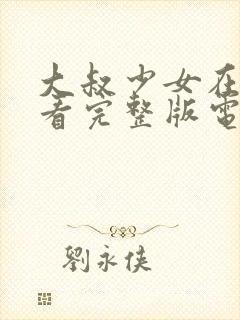 大叔少女在
看完整版電
劉永俠